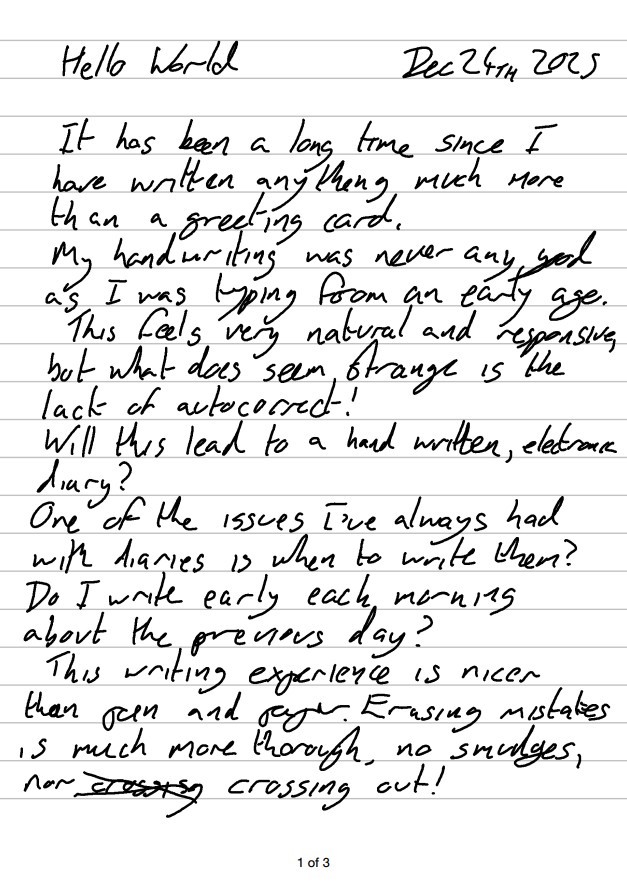 Hello World Dec 24TH 2025
It has been a long time since I
have written anything much more
than a greeting card.
My handwriting was never any good
as I was typing from an early age.
This feels very natural and responsive,
but what does seem strange is the
lack of autocorrect!
Will this lead to a hand written, electronic
diary?
One of the issues I've always had
with diaries is when to write them?
Do I write early each morning
about the previous day?
This writing experience is nicer
than pen and paper. Erasing mistakes
is much more thorough, no smudges,
nor crossing crossing out!
1 of 3